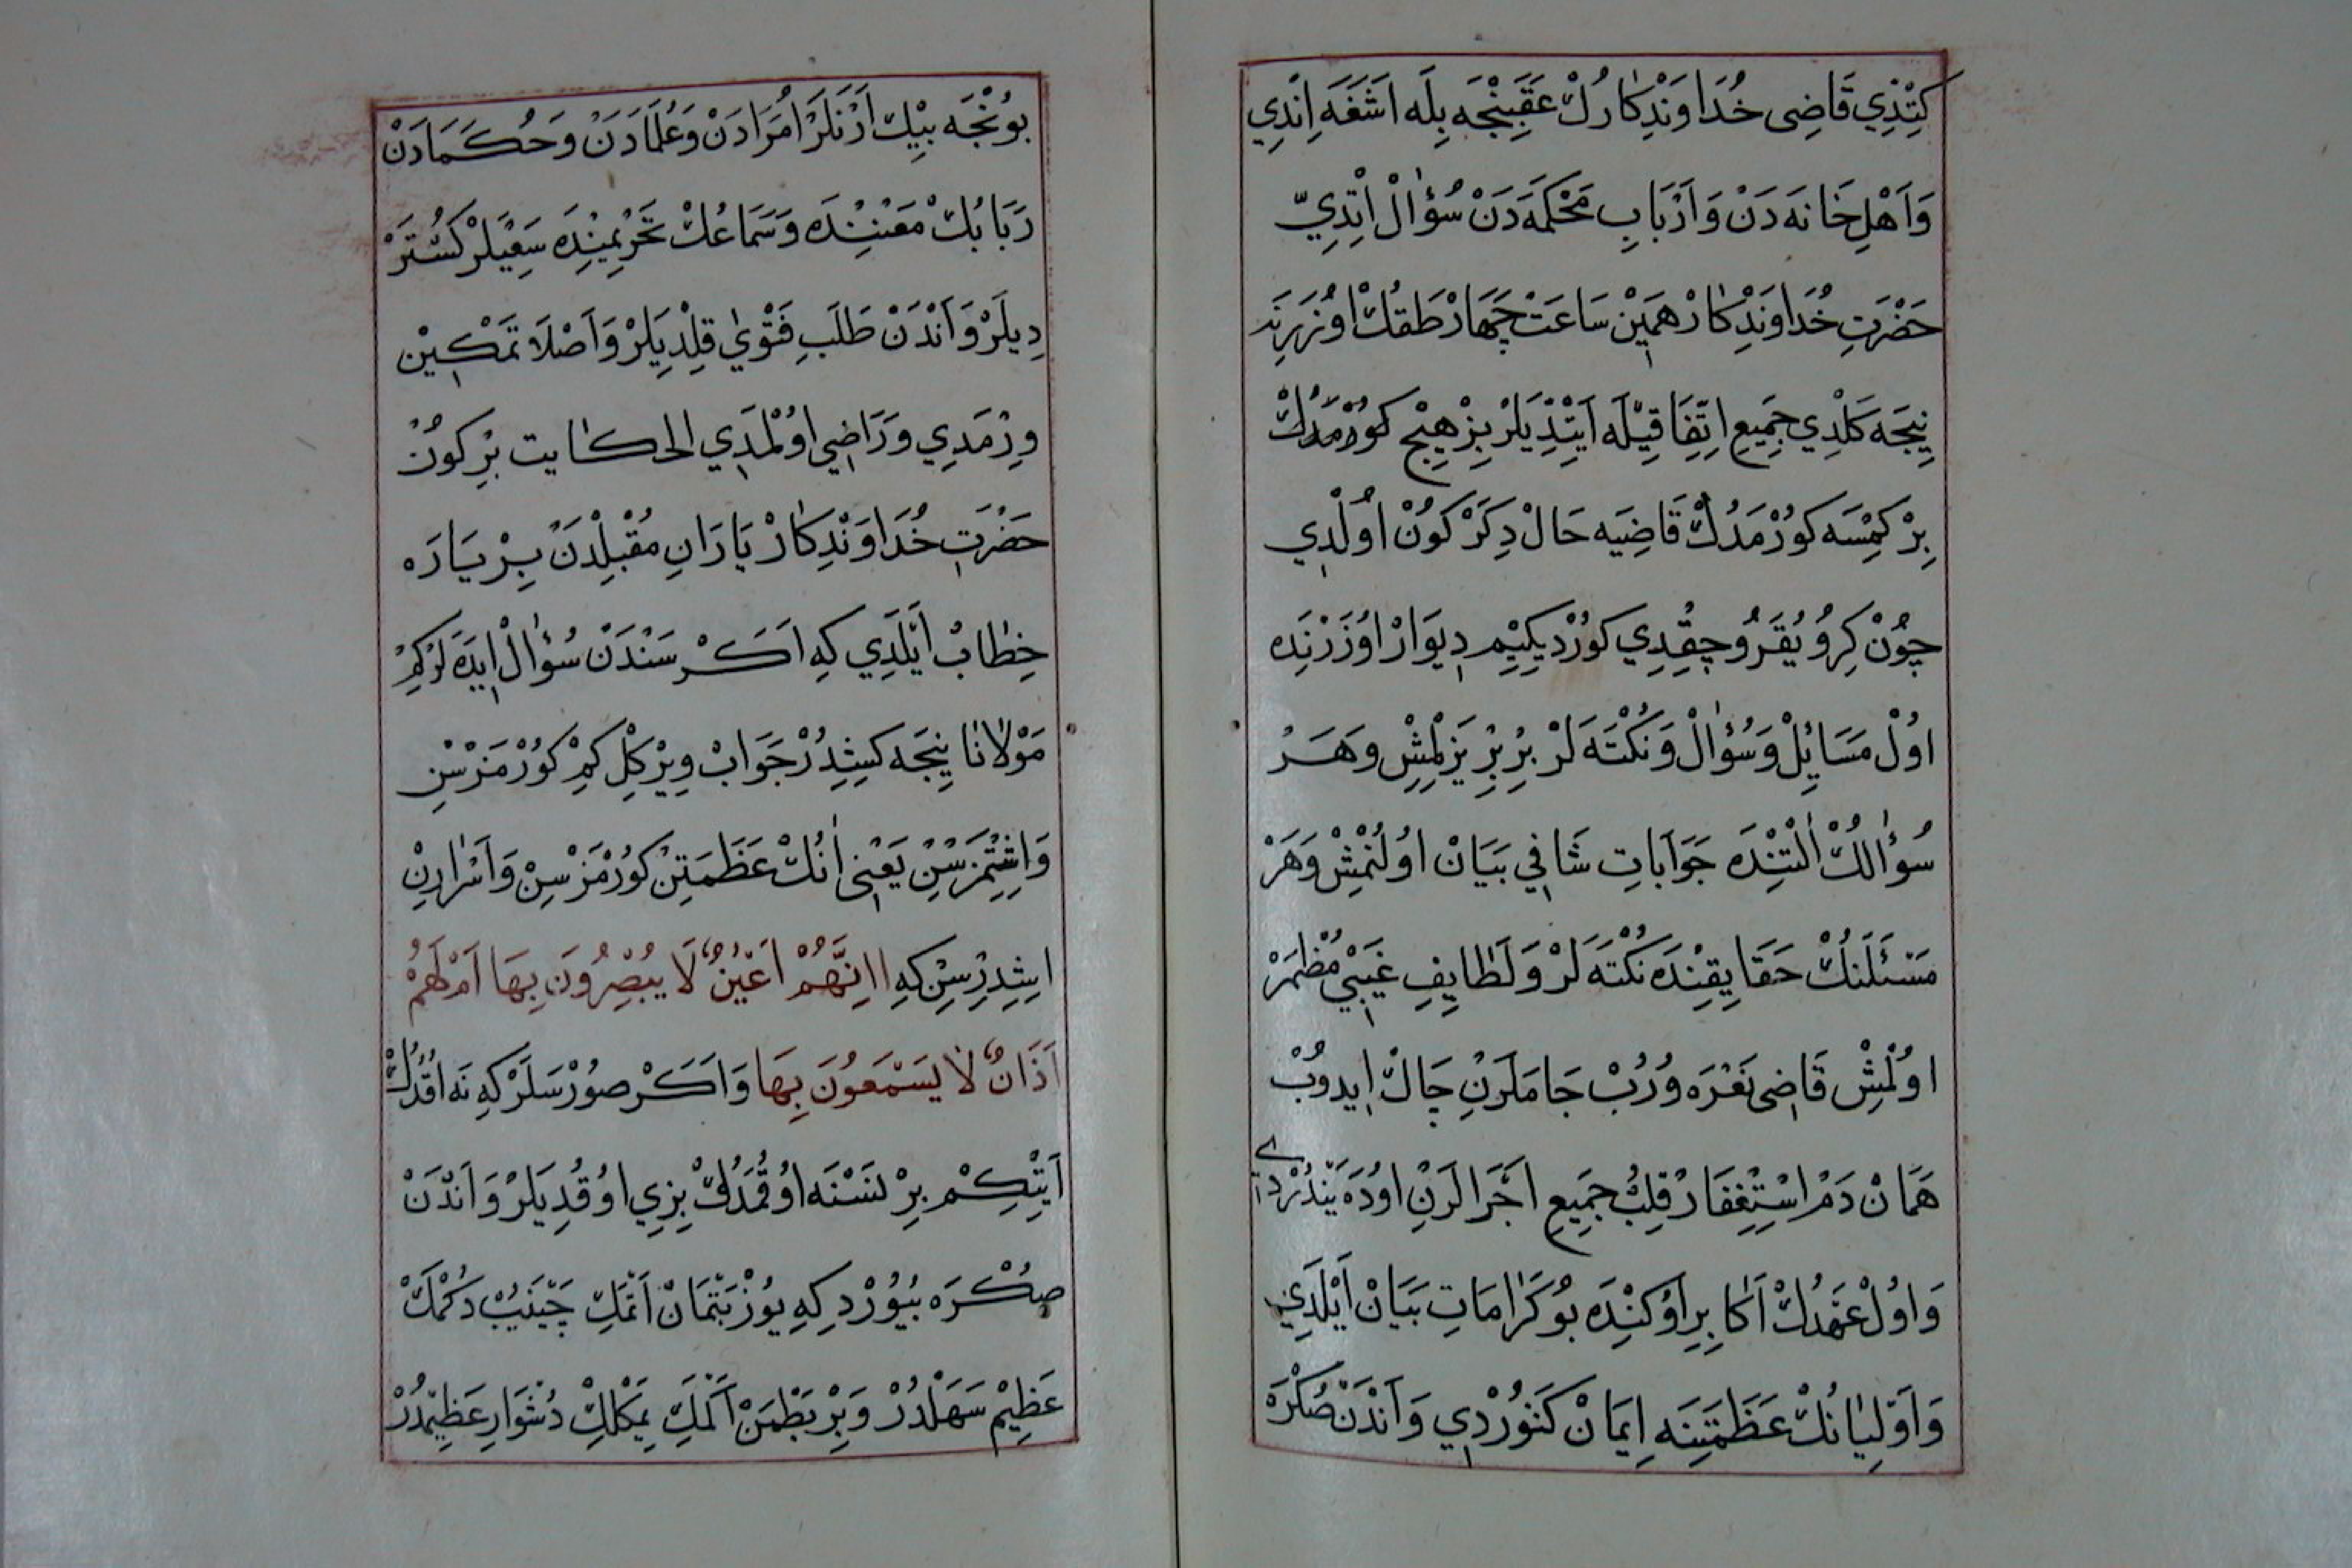 كِتْدِي قَاضِى خُدَاوَنْدِكَارُكْ عَقَبِنْجَه بِلَه اَشَغَه اِنْدِي
وَاَهْلِ خَانَه دَنْ وَاَرْبَابِ مَحْكَمَه دَنْ سُؤٰالْ اِتْدِيّ
حَضْرَتِ خُدَاوَنْدِكَارْ هَمِيْن سَاعَتْ چَهَارْ طَقُكْ اوُزَرِنَه
نِيجَه كَلْدِي جَمِيعِ اِتِّفَاقِيْلَه اَيِتْدِيلَرْ بِزْ هِيْچ كوُرْمَدُكْ
بِرْ كِمْسَه كوُرْمَدُكْ قَاضِيَه حَالْ دِكَرْ كوُنْ اوُلْدِي
چوُنْ كِرُو يُقَرُو چِقْدِي كوُرْدِيكِيْم دِيوَارْ اوُزَرْنِدَه
اوُلْ مَسَايِلْ وَسُؤٰالْ وَنُكْتَه لَرْ بِرْ بِرْ يَزِلْمِشْ وَهَرْ
سُؤٰالُكْ اٰلْتِنْدَه جَوَابَاتِ شَافِي بَيَانْ اوُلُنْمِشْ وَهَرْ
مَسْئَلَنُكْ حَقَايِقِنْدَه نُكْتَه لَرْ وَلَطَايِفِ غَيْبِي مُظْمَرْ
اوُلْمِشْ قَاضِى نَعْرَه وُرُبْ جَامَلَرِنِ چَاكْ اِيدوُبْ
هَمَانْ دَمْ اسْتِغْفَارْ قِلِبْ جَمِيعِ اَجْزَالَرِنِ اوُدَه يَنْدُرْدِي
وَاوُلْ عَهْدُكْ اَكَابِرِ اوُكِنْدَه بوُ كَرَامَاتِ بَيَانْ اَيْلَدِي
وَاَوْلِيَانُكْ عَظَمَتِنَه اِيمَانْ كَتوُرْدِي وَاَنْدَنْ صُكْرَه
بوُنْجَه بِيْك اَرَنْلَرْ اُمَرَادَنْ وَعُلَمَادَنْ وَحُكَمَادَنْ
رَبَابُكْ مَعْنِنْدَه وَسَمَاعُكْ تَحْرِيْمِنْدَه سَعْيَلَرْ كَسْتَرْ
دِيلَرْ وَاَنْدَنْ طَلَبِ فَتْوٰي قِلْدِيَلَرْ وَاَصْلَا تَمْكِيْن
وِرْمَدِي وَرَاضِي اوُلْمَدِي الحكايت بِرْ كوُنْ
حَضْرَتِ خُدَاوَنْدِكَارْ يَارَانِ مُقْبِلْدَنْ بِرْ يَارَه
خِطَابْ اَيْلَدِي كِه اَكَرْ سَنْدَنْ سُؤٰالْ اِيدَه لَرْ كِمْ
مَوْلَانَا نِيجَه كِشِيدُرْ جَوَابْ وِيْرْ كِلْ كِمْ كوُرْمَزْسِنْ
وَاِشِتْمَزْسِنْ يَعْنِى اٰنُكْ عَظَمَتِنْ كوُرْمَزْسِنْ وَاَسْرَارِنْ
اِشِيدِرْسِنْ كِه اِنَّهُمْ اَعْيُنٌ لَا يُبْصِرُونَ بِهَا اَمْ لَهُمْ
اٰذَانٌ لَا يَسْمَعُونَ بِهَا وَاَكَرْ صوُرْسَلَرْ كِه نَه اقُدُكْ
اَيِتْكِمْ بِرْ نَسْنَه اوُقُمَدُكْ بِزِي اوُقُدِيَلَرْ وَاَنْدَنْ
صُكْرَه بُيُوُرْدِ كِه يوُزْ بَتْمَانْ اَتْمَكِ چَيْنَيُبْ دُكْمَكْ
عَظِيْم سَهَلْدُرْ وَبِرْ بَطْمَنْ اَتْمَكِ يِمَكْلِكْ دُشْوَارِ عَظِيْمدُرْ